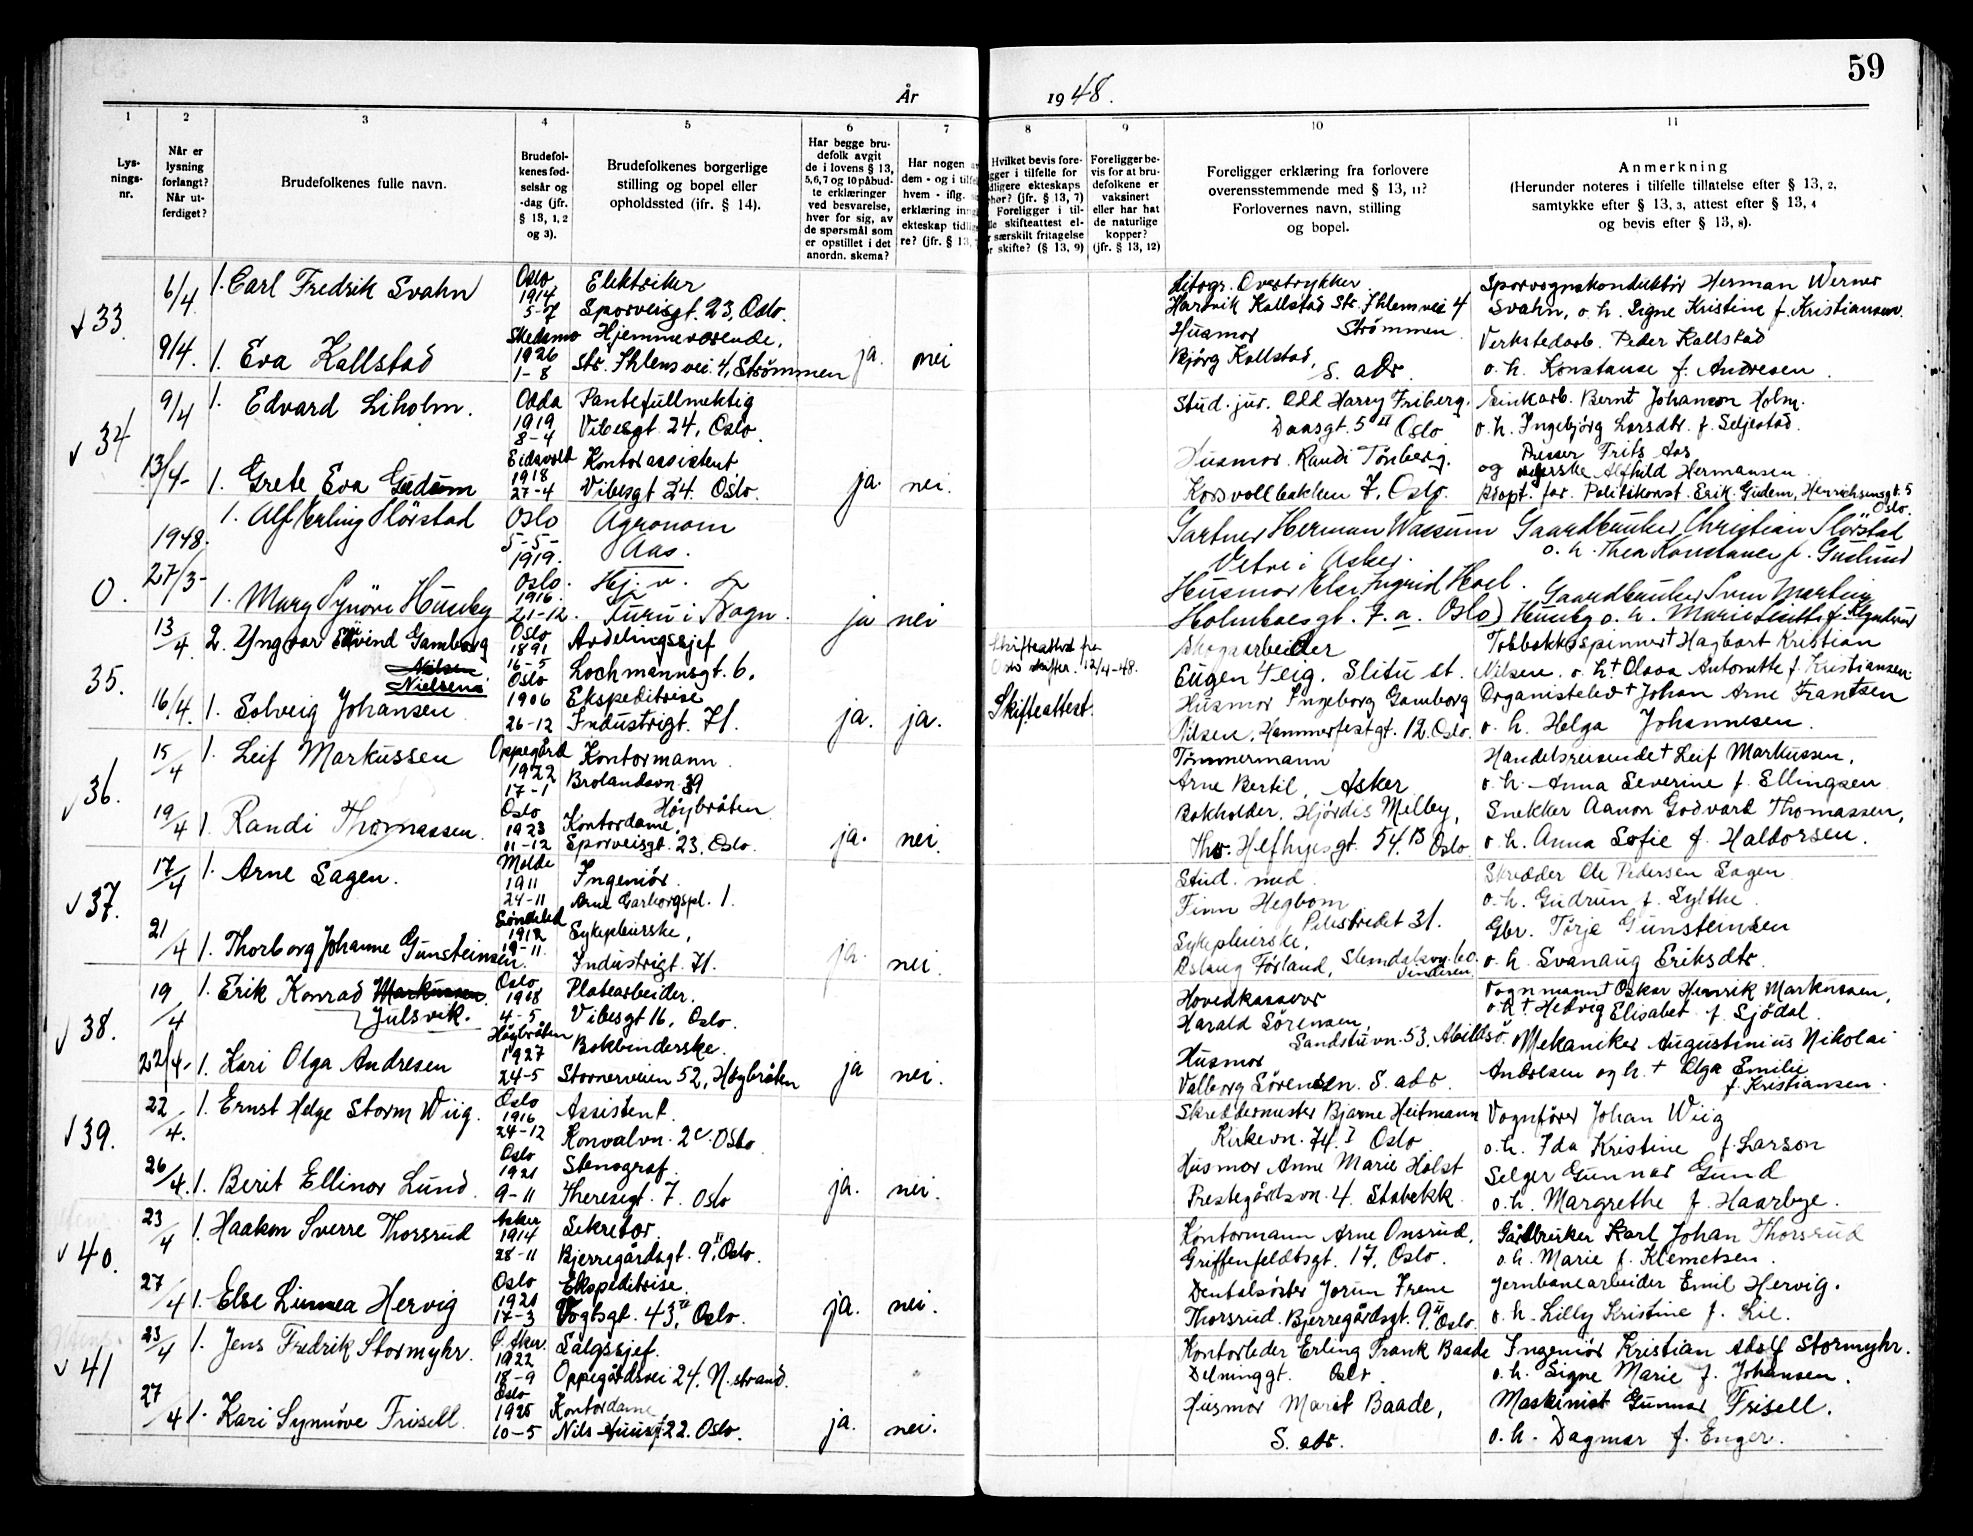 59
År 1948.
1 2 3 4 5 6 7 8 9 10 11
Lys-
nings-
nr.
Når er
lysning
forlangt?
Når ut-
ferdiget?
Brudefolkenes fulle navn.
Brudefol-
kenes fød-
selsår og
-dag (jfr.
§ 13, 1, 2
og 3).
Brudefolkenes borgerlige
stilling og bopel eller
opholdssted (ifr. § 14).
Har begge bru-
defolk avgit
de i lovens § 13,
5,6,7 og 10 påbud-
te erklæringer
ved besvarelse,
hver for sig, av
de spørsmål som
er opstillet i det
anordn. skema?
Har nogen
dem - og i
hvem - iflg.
erklæring
ekteskap
re? (jfr. § 13,
Hvilket bevis fore-
ligger i tilfelle for
ekteskaps
(jfr. § 13, 7)
Foreligger i til-
skifteattest el-
særskilt fritagelse
skifte? (§ 13, 9)
Foreligger be-
vis for at bru-
defolkene er
vaksinert
eller har hat
de naturlige
kopper?
(jfr. § 13, 12)
Foreligger erklæring fra forlovere
overensstemmende med § 13, 11?
Forlovernes navn, stilling
og bopel.
Anmerkning
(Herunder noteres i tilfelle tillatelse efter § 13, 2,
samtykke efter § 13, 3, attest efter § 13, 4
og bevis efter § 13, 8).
33 6/4 1. Carl Fredrik Svahn Oslo 1914 5-7 Elektriker Sporveisgt. 23, Oslo.
Litogr. Overtrykker Hartvik Kallstad Str. Ihlens vei 4 Strømmen
Sporvognskonduktør Herman Werner Svahn, o. h. Signe Kristine f. Kristiansen.
9/4. 1. Eva Kallstad Skedsmo 1926 1-8 Hjemmeværende, Str. Ihlens vei. 4, Strømmen ja. nei
Husmor Bjørg Kallstad, S. adr.
Verkstedarb. Peder Kallstad o. h. Konstanse f. Andresen.
34 9/4 1. Edvard Liholm. Odda 1919 8-4 Pantefullmektig Vibesgt. 24, Oslo.
Stud. jur. Odd Harry Friberg. Daasgt. 5 II Oslo
Sinkarb. Bernt Johanson Holm. o. h. Ingebjørg Larsdtr. f. Seljestad.
13/4- 1. Grete Eva Gudem Eidsvold 1918 27-4 Kontorassistent Vibesgt 24. Oslo. ja. nei.
Husmor Randi Tønberg. Korsvollbakken 7, Oslo.
Presser Frits Aas og Alfhild Hermansen.
Adopt. for. Politikonst. Erik Gudem, Henrichsensgt. 5 Oslo.
0. 1948. 27/3- 1. Alf Erling Flørstad Oslo 5-5- 1919. Agronom Aas.
Gartner Herman Wassum Vetre i Asker.
Gaardbruker Christian Flørstad o. h. Thea Konstance f. Guslund
1. Mary Synøve Huseby Oslo. 1916. 21-12. Hj. v. Furu i Trøgn. ja nei
Husmor Else Ingrid Hoel. Holmboesgt. 7. a. Oslo)
Gaardbruker Sven Martin Huseby o. h.
35. 13/4 2. Yngvar Eivind Gamborg Nilsen Nielsen Oslo 1891 16-5 Avdelingssjef Lochmannsgt. 6.
Skifteattest fra Oslo skifter. 12/4-48.
Skogsarbeider Eugen Teig. Slitu st.
Tobbakksspinner † Hagbart Kristian Nilsen. o. h† Olava Antonette f. Kristiansen
16/4. 1. Solveig Johansen Oslo 1906 26-12 Ekspeditrise Industrigt. 71. ja. ja. Skifteattest.
Husmor Ingeborg Gamborg Nilsen, Hammerfestgt. 12. Oslo.
Organistelev † Johan Arne Frantsen o. h. Helga Johannesen.
36. 15/4 1. Leif Markussen Oppegård 1922 17-1 Kontormann. Brolandsvn. 39 Høybråten
Tømmermann Arne Bertil, Asker
Handelsreisende † Leif Markussen, o. h. Anna Severine f. Ellingsen
19/4 1. Randi Thomassen. Oslo 1923 11-12 Kontordame, Sporveisgt. 23, Oslo. ja. nei.
Bokholder, Hjørdis Melby, Ths. Heftyesgt. 54. B Oslo
Snekker Aanon Godvard Thomassen, o. h. Anna Sofie f. Haldorsen.
37. 17/4 1. Arne Sagen. Molde 1911 24-11 Ingeniør. Arne Garborgspl. 1.
Stud. med Finn Hegbom Pilestredet 31.
Skredder Ole Pedersen Sagen o. h. Gudrun f. Sylthe
21/4 1. Thorborg Johanne Gunsteinsen. Søndeled 1912 19-11 Sykepleierske, Industrigt. 71. ja. nei.
Sykepleierske, Aslaug Førland, Slemdalsvn. 60. Vinderen.
Gbr. Tørje Gunsteinsen o. h. Svanaug Eriksdtr.
38. 19/4 1. Erik Konrad Markussen Julsvik. Oslo 1918 4-5 Platearbeider. Vibesgt 16, Oslo.
Hovedkasserer Harald Sørensen, Sandstuvn. 53, Abildsø.
Vognmann † Oskar Henrik Markussen, o. h † Hedvig Elisabet f. Sjødal.
22/4- 1. Kari Olga Andresen Høybråten 1927 24-5 Bokbinderske. Stovnerveien 52, Høybråten ja nei.
Husmor Valborg Sørensen. S. adr.
Mekaniker Augustinius Nikolai Andresen og h. † Olga Emilie f. Kristiansen.
39. 22/4. 1. Ernst Helge Storm Wiig. Oslo 1916 24-12 Assistent. Konvalvn. 2c. Oslo
Skreddermester Bjarne Heitmann Kirkevn. 74. I Oslo
Vognfører Johan Wiig o. h. Ida Kristine f. Larson
26/4. 1. Berit Ellinor Lund. Oslo 1921 9-11 Stenograf. Theresigt. 7. Oslo ja. nei.
Husmor Anne Marie Holst Prestegårdsvn. 4. Stabekk.
Selger Gunnar Gund o. h. Margrethe f. Haarbye.
40. 23/4 1. Haakon Sverre Thorsrud Asker 1914 28-11 Sekretær. Bjerregårdsgt. 9 II, Oslo.
Kontormann Arne Onsrud, Griffenfeldtsgt. 17, Oslo.
Gårdbruker Karl Johan Thorsrud o. h. Marie f. Klemetsen.
27/4 1. Else Linnea Hervig Oslo 1921 17-3 Ekspeditrise. Vogtsgt. 43, Oslo. ja. nei.
Dentalsøster Jorun Irene Thorsrud. Bjerregårdsgt. 9 II Oslo.
Jernbanearbeider Emil Hervig. o. h. Lilly Kristine f. Lie.
41 23/4 1. Jens Fredrik Stormyhr. Ø. Aker. 1922 18-9 Salgssjef. Oppegårdsvei 24, N. strand.
Kontorleder Erling Frank Baade Delninggt. Oslo
Ingeniør Kristian Adolf Stormyhr. o. h. Signe Marie f. Johansen.
27/4 1. Kari Synnøve Frisell. Oslo 1925 10-5 Kontordame Nils Huusgt 22. Oslo. ja. nei.
Husmor Marit Baade, S. adr.
Maskinist Gunnar Frisell. o. h. Dagmar f. Enger.